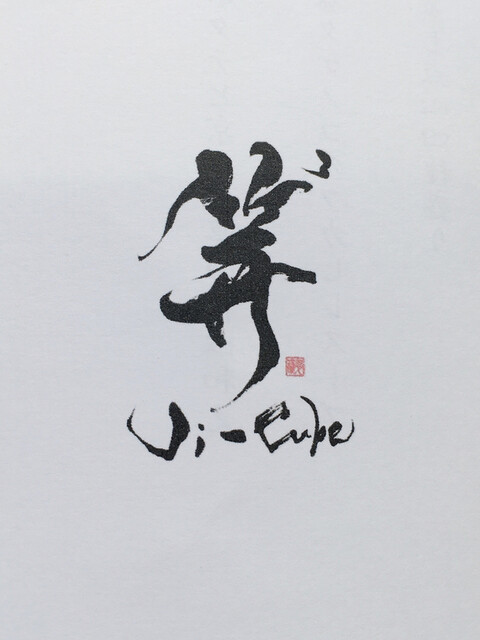 笄
Ji-Cube